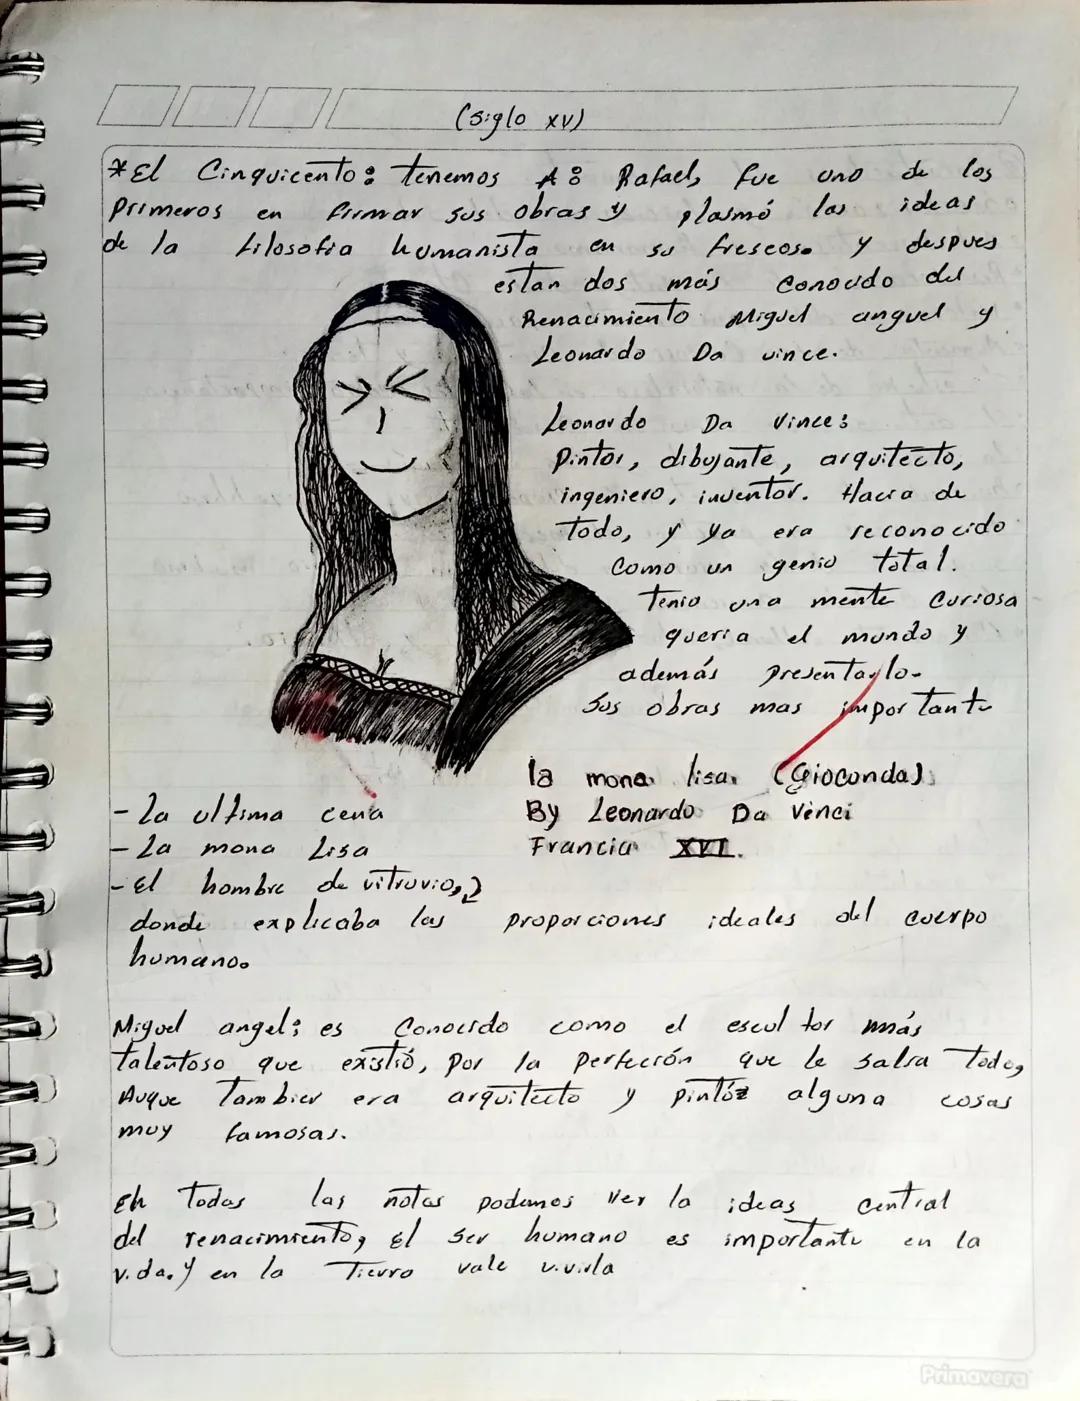 (siglo XV)
*El Cinquicento: tenemos A: Rafael, fue uno de los
primeros en firmar sus obras y plasmó las ideas
de la filosofia humanista en su frescos. y despues
estan dos más conocido del
Renacimiento Miguel anguel y
Leonardo Da vince.
Leonardo Da Vince:
Pintor, dibujante, arquitecto,
ingeniero, inventor. Hacia de
Todo, y ya era reconocido
como un genio total.
Tenia una mente curiosa
queria el mundo y
además presentarlo.
Sus obras mas importante
la mona lisa. (Gioconda)
By Leonardo Da Vinci
Francia XVI.
- La ultima cena
- La mona Lisa
- El hombre de vitruvio,
donde explicaba las proporciones ideales del cuerpo
humano.
Miguel angel; es Conocido como el escultor más
talentoso que existió, por la perfeción que le salia Todo,
Auque Tambien era arquitecto y pintó alguna cosas
muy famosas.
En Todas las notas podemos ver la ideas central
del renacimiento, El ser humano es importante en la
vida. y en la Tierra vale vivirla
Primavera